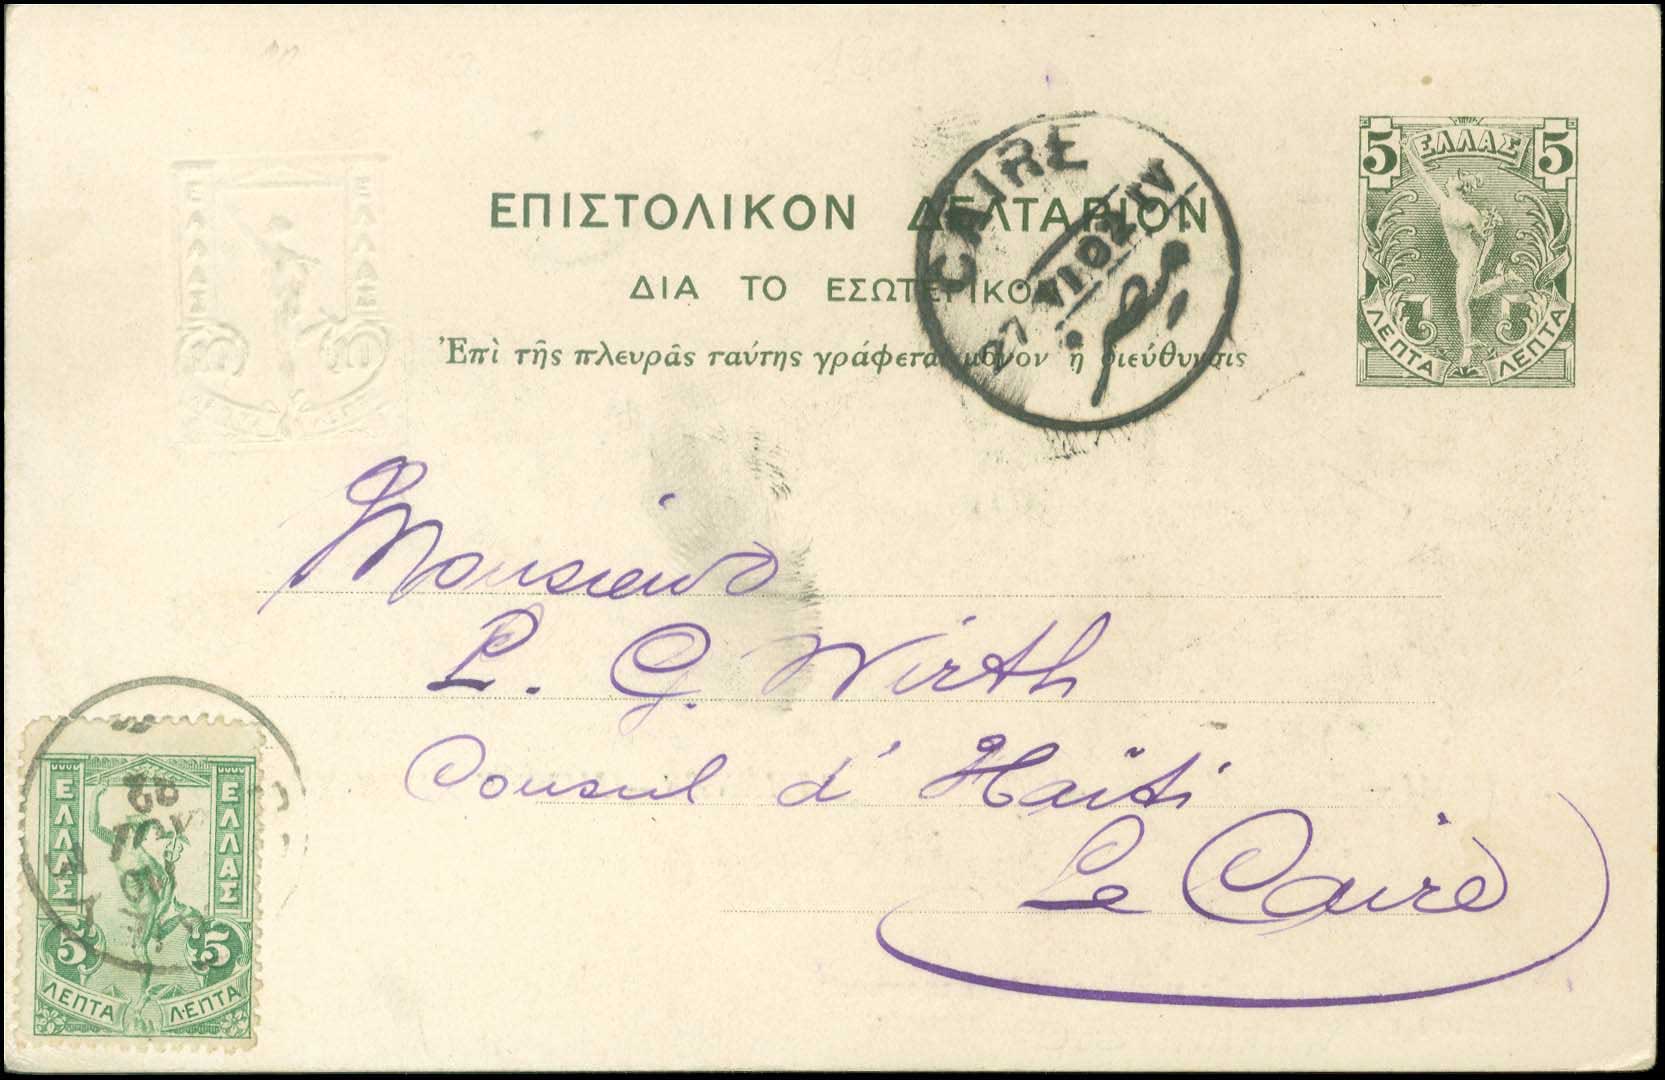 5 ΕΛΛΑΣ 5
ΛΕΠΤΑ ΛΕΠΤΑ
ΕΠΙΣΤΟΛΙΚΟΝ ΔΕΛΤΑΡΙΟΝ
ΔΙΑ ΤΟ ΕΣΩΤΕΡΙΚΟΝ
Ἐπὶ τῆς πλευρᾶς ταύτης γράφεται μόνον ἡ διεύθυνσις
CAIRE
27 VI 02 IV
Monsieur
L. G. Wirth
Consul d'Haïti
Le Caire
ΕΛΛΑΣ ΕΛΛΑΣ
5 5
ΛΕΠΤΑ ΛΕΠΤΑ